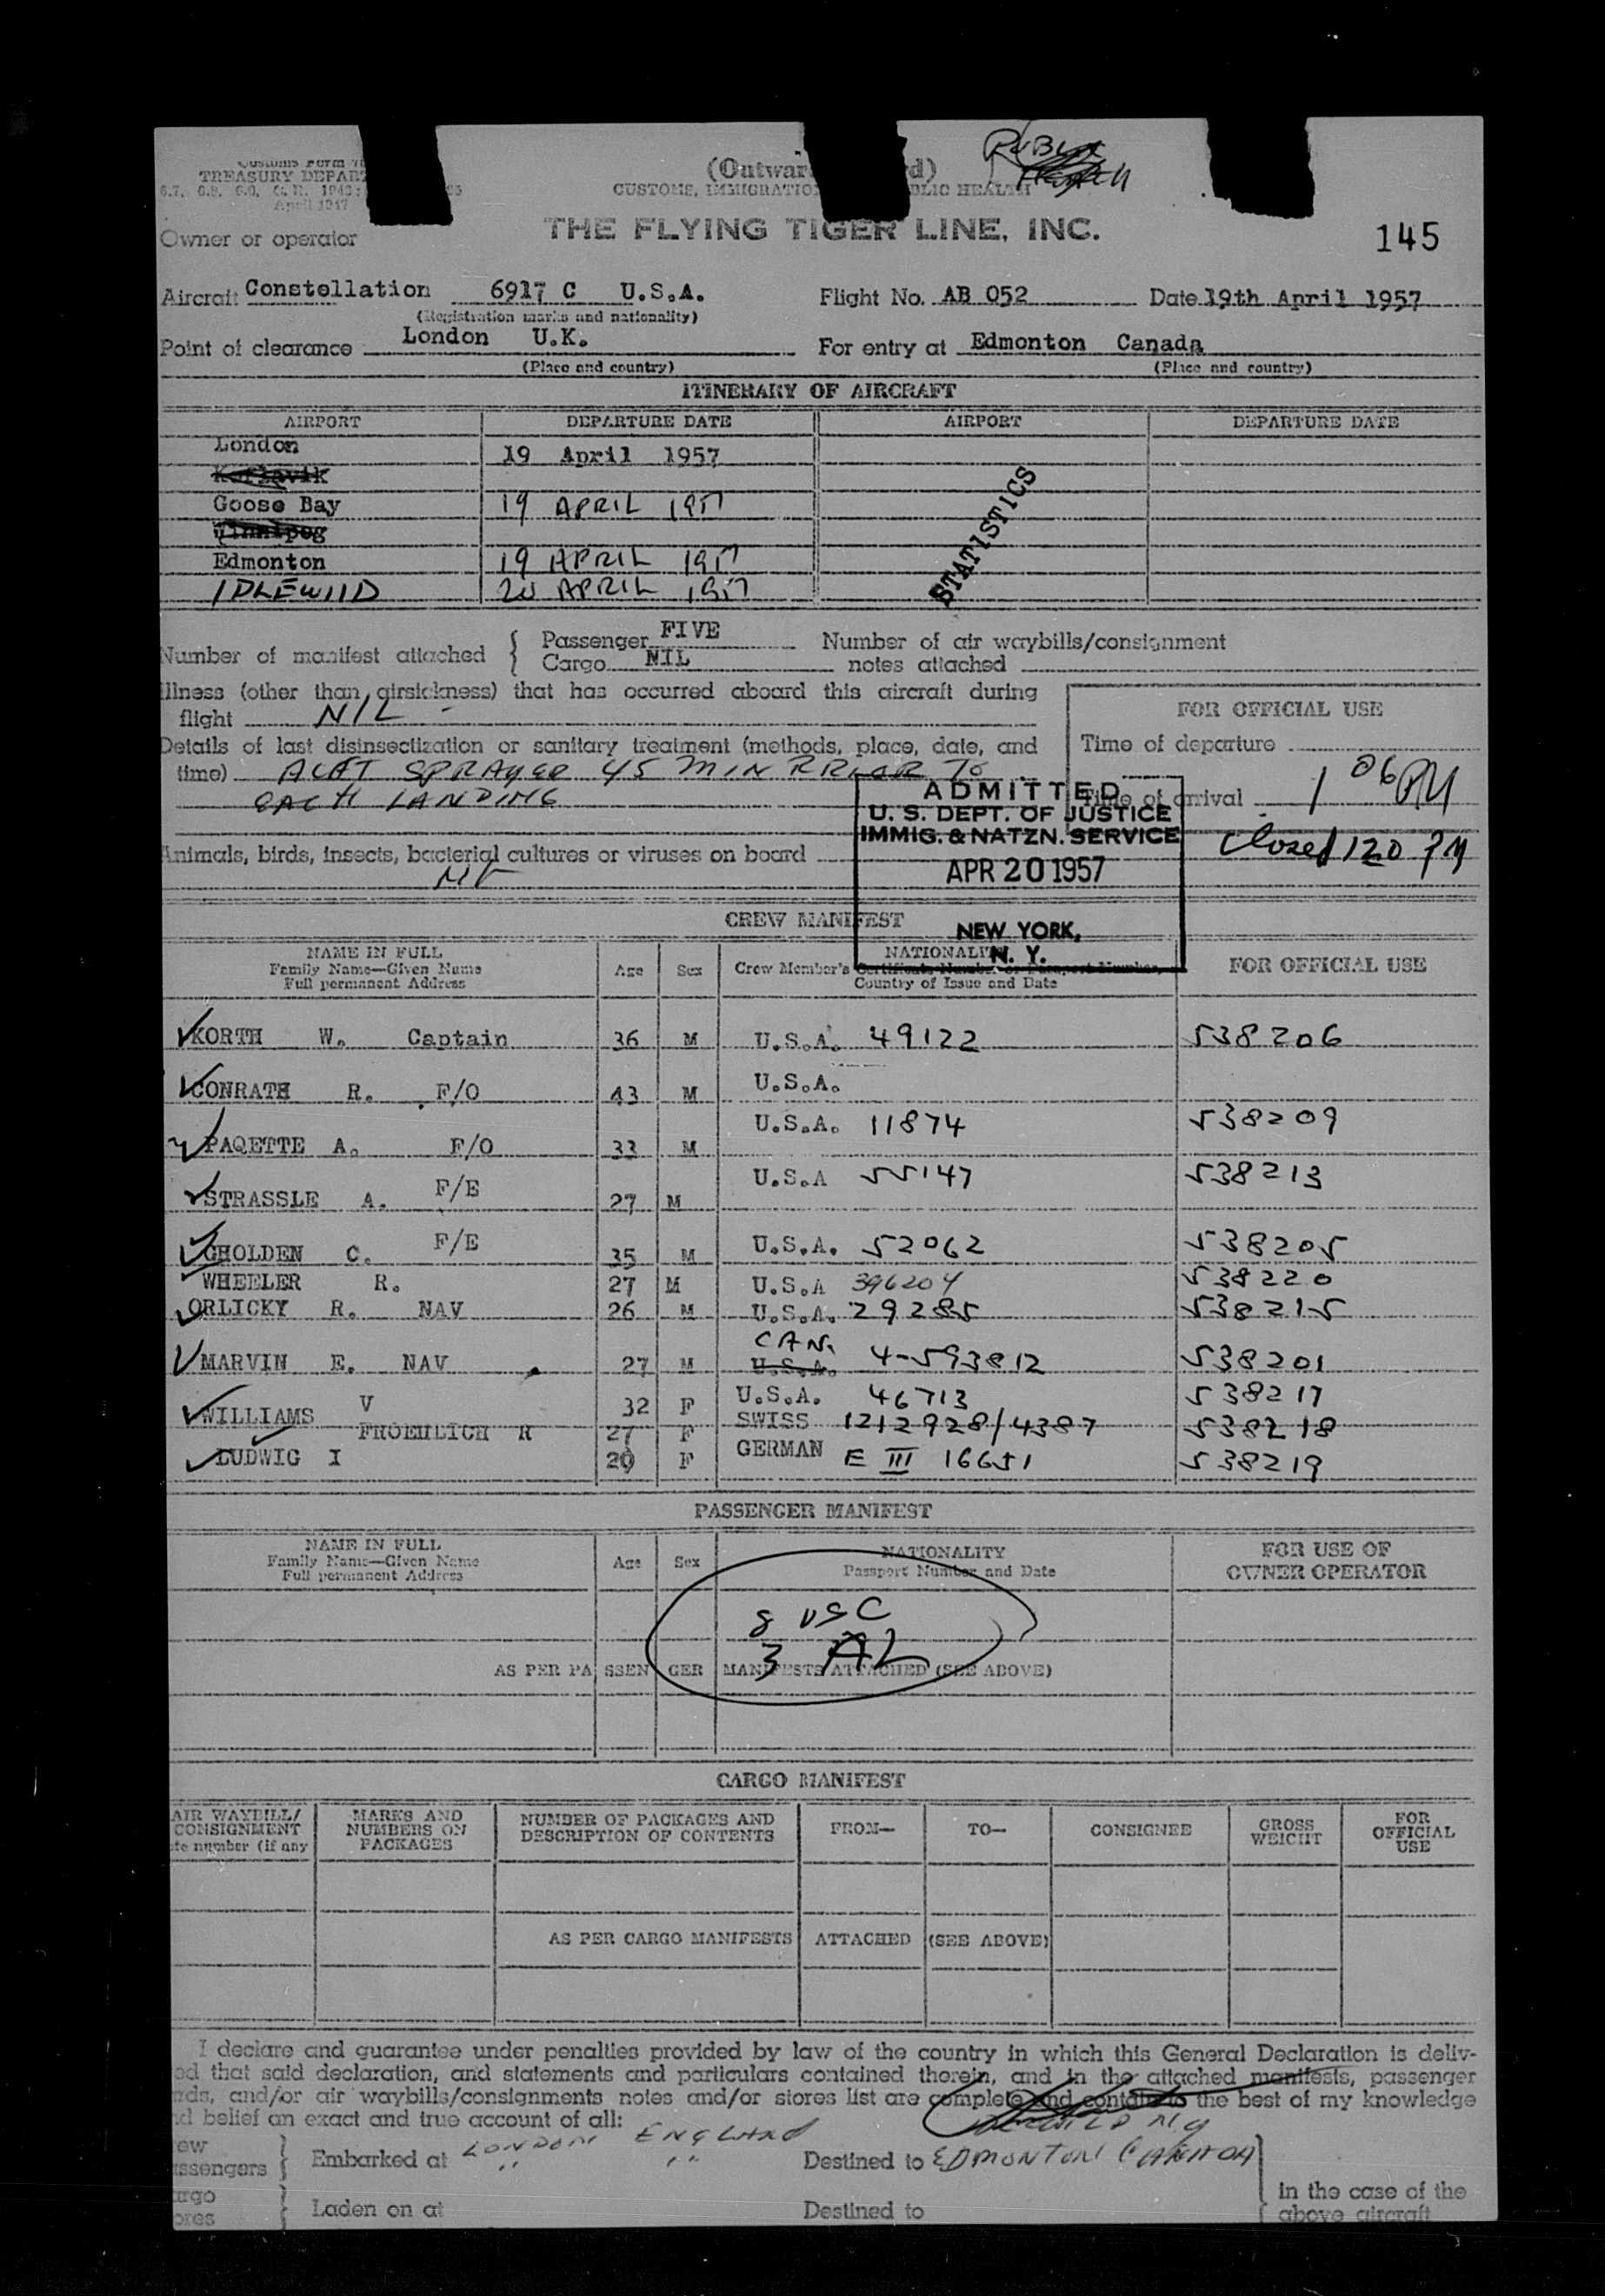 Customs Form
TREASURY DEPART
April 1947
(Outward
CUSTOMS, IMMIGRATIO PUBLIC HEALTH
Owner or operator
THE FLYING TIGER LINE, INC.
145
Aircraft Constellation 6917 C U.S.A. Flight No. AB 052 Date 19th April 1957
(Registration marks and nationality)
Point of clearance London U.K. For entry at Edmonton Canada
(Place and country) (Place and country)
ITINERARY OF AIRCRAFT
AIRPORT DEPARTURE DATE AIRPORT DEPARTURE DATE
London 19 April 1957
Keflavik
Goose Bay 19 APRIL 1957
Winnipeg
Edmonton 19 APRIL 1957
IDLEWILD 20 APRIL 1957
STATISTICS
Number of manifest attached { Passenger FIVE Number of air waybills/consignment
Cargo NIL notes attached
Illness (other than airsickness) that has occurred aboard this aircraft during
flight NIL
FOR OFFICIAL USE
Details of last disinsectization or sanitary treatment (methods, place, date, and
time) ACFT SPRAYED 45 MIN PRIOR TO
EACH LANDING
Time of departure
Time of arrival 1 06 PM
Closed 120 PM
ADMITTED
U. S. DEPT. OF JUSTICE
IMMIG. & NATZN. SERVICE
APR 20 1957
NEW YORK,
N. Y.
Animals, birds, insects, bacterial cultures or viruses on board
CREW MANIFEST
NAME IN FULL
Family Name—Given Name
Full permanent Address
Age Sex
NATIONALITY
Crew Member's Certificate Number or Passport Number,
Country of Issue and Date
FOR OFFICIAL USE
KORTH W. Captain 36 M U.S.A. 49122 538206
CONRATH R. F/O 43 M U.S.A.
PAQETTE A. F/O 33 M U.S.A. 11874 538209
STRASSLE A. F/E 27 M U.S.A 55147 538213
GHOLDEN C. F/E 35 M U.S.A. 52062 538205
WHEELER R. 27 M U.S.A 396204 538220
ORLICKY R. NAV 26 M U.S.A. 29285 538215
MARVIN E. NAV 27 M CAN. U.S.A. 4-593812 538201
WILLIAMS V 32 F U.S.A. 46713 538217
FROEHLICH R 27 F SWISS 1212928/4387 538218
LUDWIG I 29 F GERMAN E III 16651 538219
PASSENGER MANIFEST
NAME IN FULL
Family Name—Given Name
Full permanent Address
Age Sex
NATIONALITY
Passport Number and Date
FOR USE OF
OWNER OPERATOR
8 USC
3 AL
AS PER PASSENGER MANIFESTS ATTACHED (SEE ABOVE)
CARGO MANIFEST
AIR WAYBILL/
CONSIGNMENT
te number (if any
MARKS AND
NUMBERS ON
PACKAGES
NUMBER OF PACKAGES AND
DESCRIPTION OF CONTENTS
FROM— TO— CONSIGNEE
GROSS
WEIGHT
FOR
OFFICIAL
USE
AS PER CARGO MANIFESTS ATTACHED (SEE ABOVE)
I declare and guarantee under penalties provided by law of the country in which this General Declaration is deliv-
ed that said declaration, and statements and particulars contained therein, and in the attached manifests, passenger
rds, and/or air waybills/consignments notes and/or stores list are complete and contain to the best of my knowledge
d belief an exact and true account of all:
ew
ssengers } Embarked at LONDON ENGLAND Destined to EDMONTON CANADA
argo
ores } Laden on at Destined to
in the case of the
above aircraft